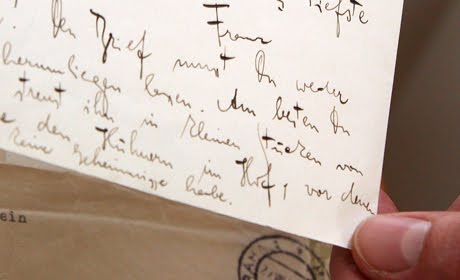 s tiefste
Franz
. Den Brief musst Du weder
herumliegen lassen. Am besten Du
streust ihn in kleinen Stücken von
den Hühnern im Hof, vor denen
keine Geheimnisse habe.
ein